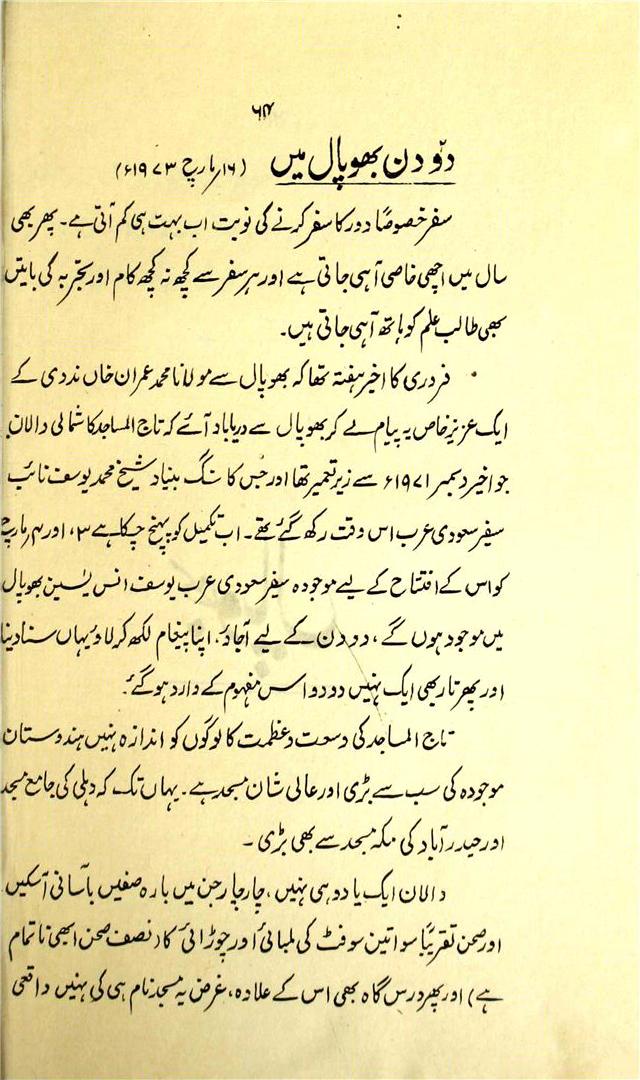 ۶۴
دو دن بھوپال میں (۱۶؍مارچ ۱۹۷۳ء)
سفر خصوصًا دور کا سفر کرنے کی نوبت اب بہت ہی کم آتی ہے۔ پھر بھی
سال میں اچھی خاصی آہی جاتی ہے اور ہر سفر سے کچھ نہ کچھ کام اور تجربہ کی باتیں
بھی طالب علم کو ہاتھ آہی جاتی ہیں۔
فروری کا اخیر ہفتہ تھا کہ بھوپال سے مولانا محمد عمران خاں ندوی کے
ایک عزیز خاص یہ پیام لے کر بھوپال سے دریاباد آئے کہ تاج المساجد کا شمالی دالان
جو اخیر دسمبر ۱۹۷۱ء سے زیر تعمیر تھا اور جس کا سنگ بنیاد شیخ محمد یوسف نائب
سفیر سعودی عرب اس وقت رکھ گئے تھے۔ اب تکمیل کو پہنچ چکا ہے ۳، اور ۴؍مارچ
کو اس کے افتتاح کے لیے موجودہ سفیر سعودی عرب یوسف انس یٰسین بھوپال
میں موجود ہوں گے، دو دن کے لیے آجاؤ۔ اپنا پیغام لکھ کر لاؤ یہاں سنا دینا
اور پھر تار بھی ایک نہیں دو دو اس مفہوم کے وارد ہوگئے۔
تاج المساجد کی وسعت و عظمت کا لوگوں کو اندازہ نہیں ہندوستان
موجودہ کی سب سے بڑی اور عالی شان مسجد ہے۔ یہاں تک کہ دہلی کی جامع مسجد
اور حیدرآباد کی مکہ مسجد سے بھی بڑی۔
دالان ایک یا دو ہی نہیں، چار چار جن میں بارہ صفیں بآسانی آسکیں
اور صحن تقریبًا سوا تین سو فٹ کی لمبائی اور چوڑائی کا (نصف صحن ابھی ناتمام
ہے) اور پھر درس گاہ بھی اس کے علاوہ، غرض یہ مسجد نام ہی کی نہیں واقعی